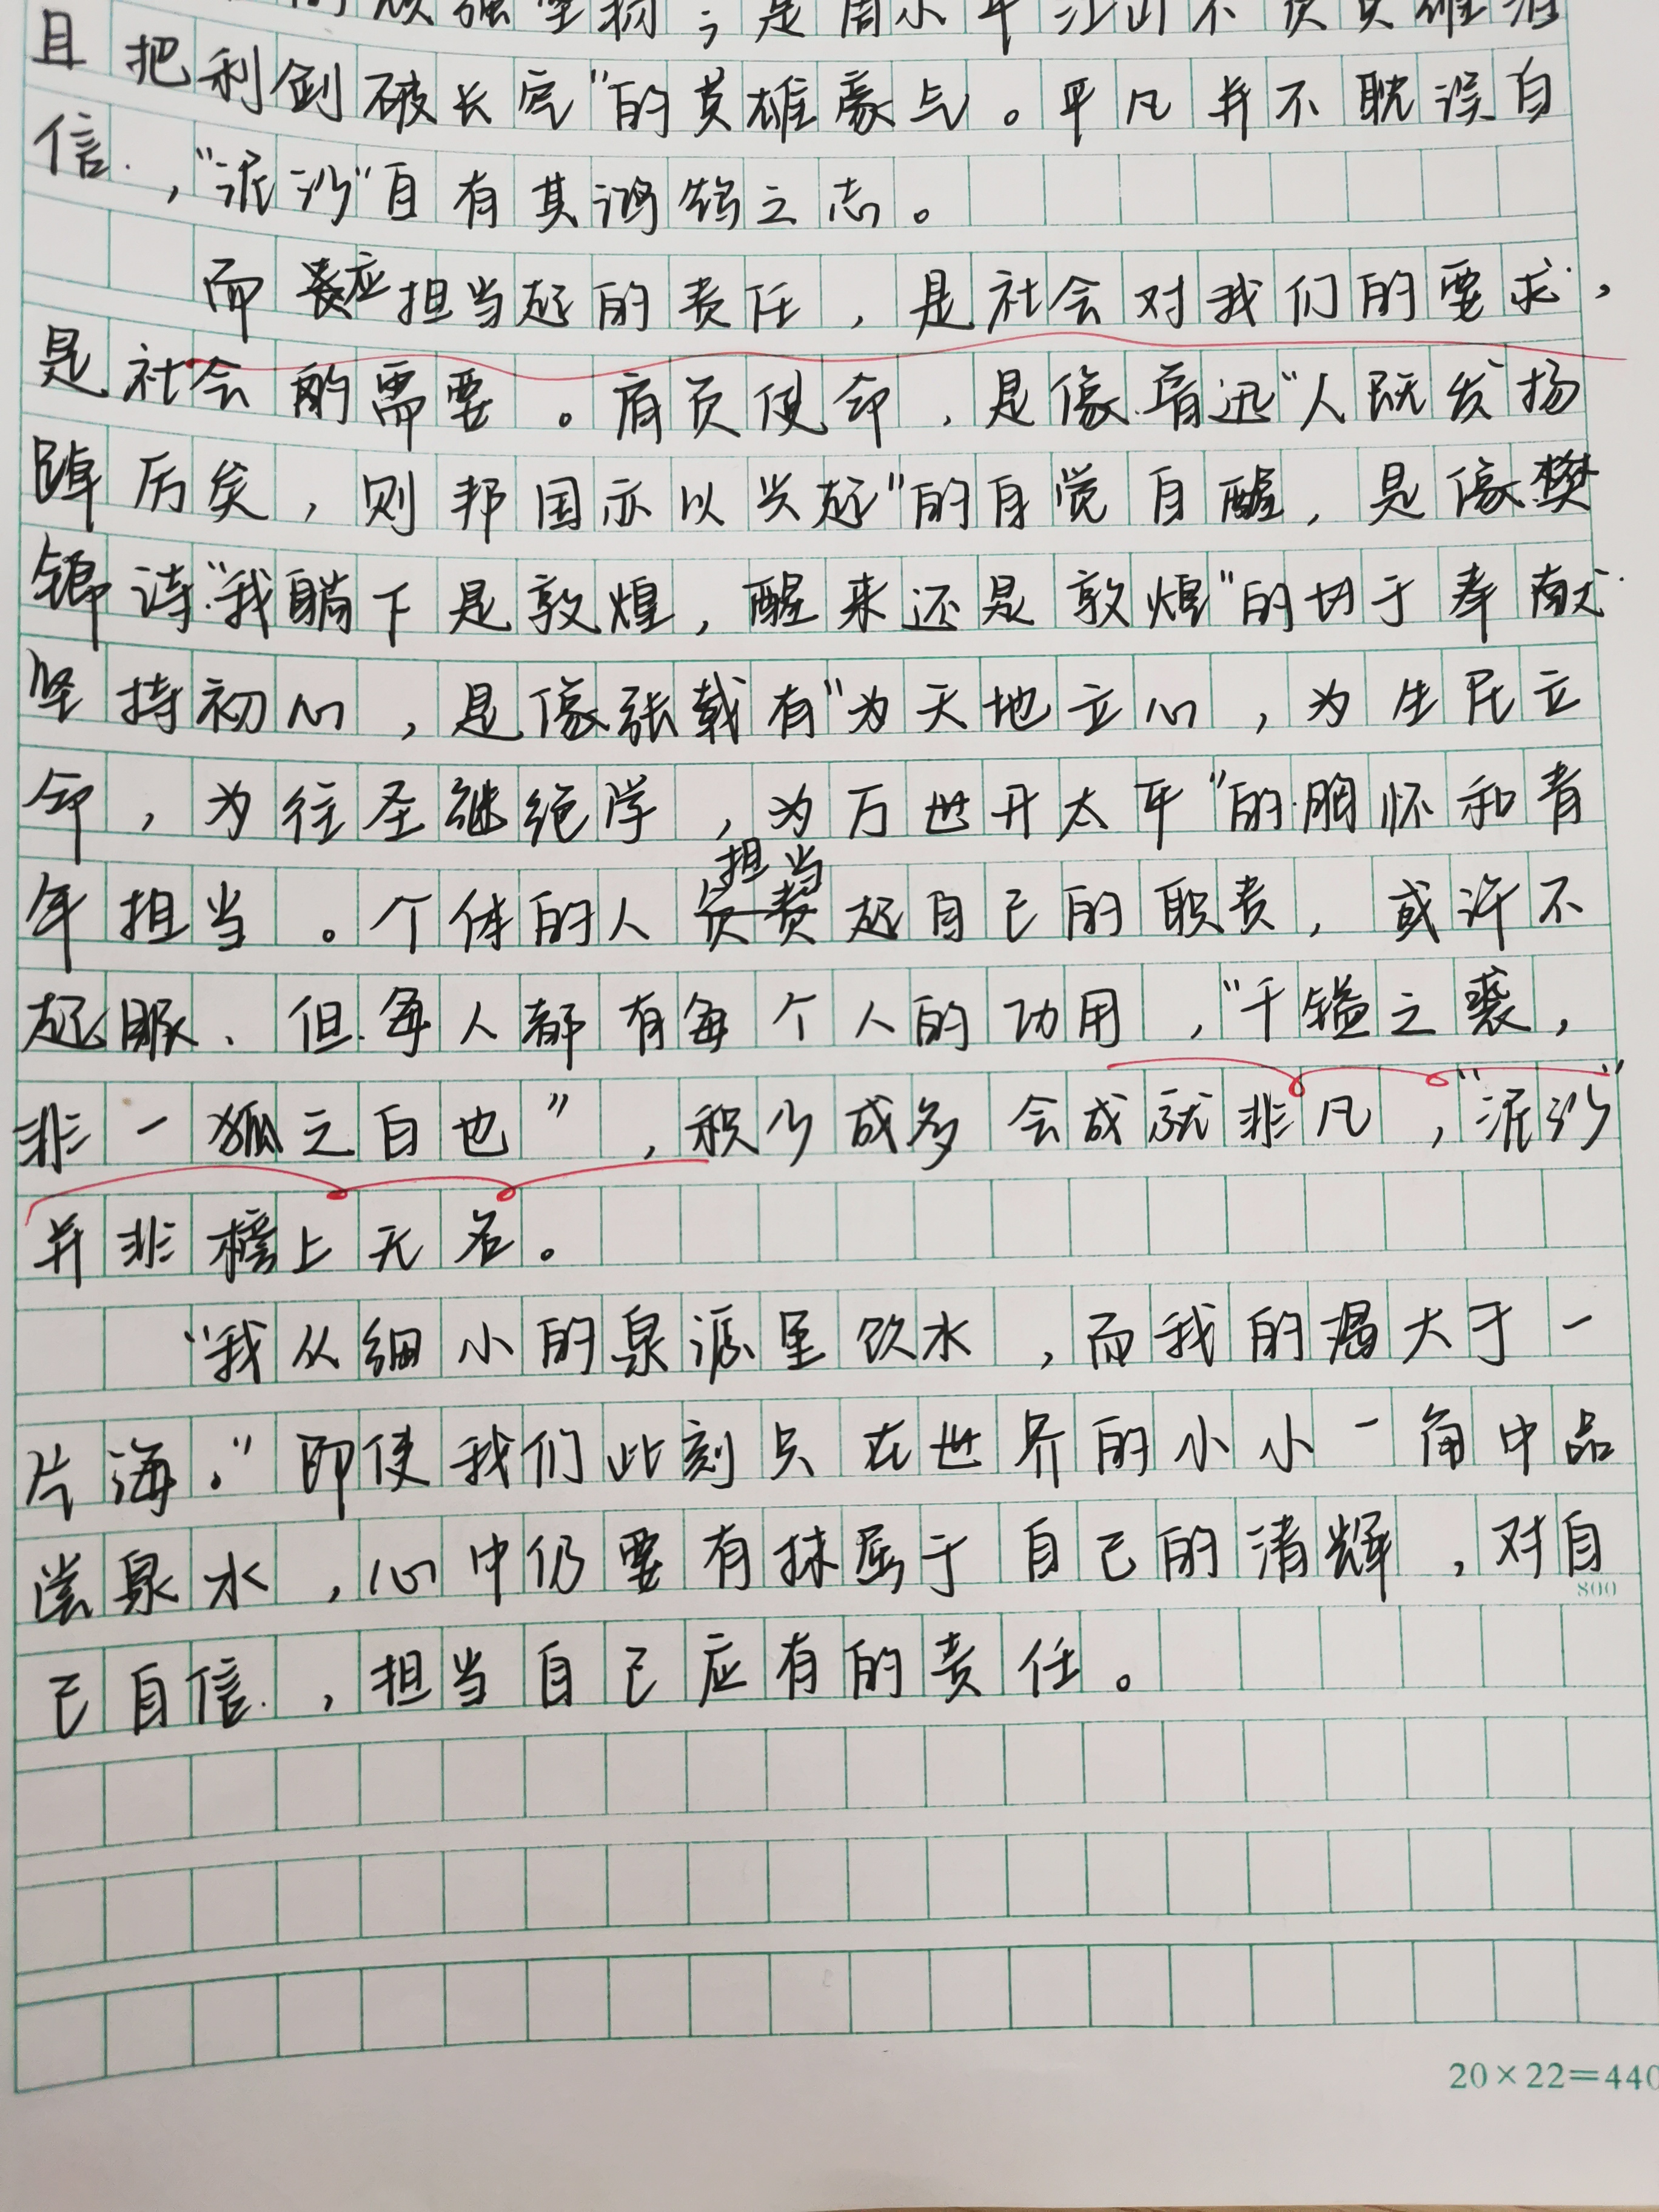 的顽强坚韧；是周小平江山不负英雄泪
且把利剑破长空"的英雄豪气。平凡并不耽误自
信，"泥沙"自有其鸿鹄之志。
而应担当起的责任，是社会对我们的要求，
是社会的需要。肩负使命，是像鲁迅"人既发扬
踔厉矣，则邦国亦以兴起"的自觉自醒，是像樊
锦诗"我躺下是敦煌，醒来还是敦煌"的切于奉献
坚持初心，是像张载有"为天地立心，为生民立
命，为往圣继绝学，为万世开太平"的胸怀和青
年担当。个体的人担当起自己的职责，或许不
起眼、但每人都有每个人的功用，"千镒之裘，
非一狐之白也"，积少成多会成就非凡，"泥沙"
并非榜上无名。
"我从细小的泉源里饮水，而我的渴大于一
片海。"即使我们此刻只在世界的小小一角中品
尝泉水，心中仍要有抹属于自己的清辉，对自
800
己自信，担当自己应有的责任。
20×22=440